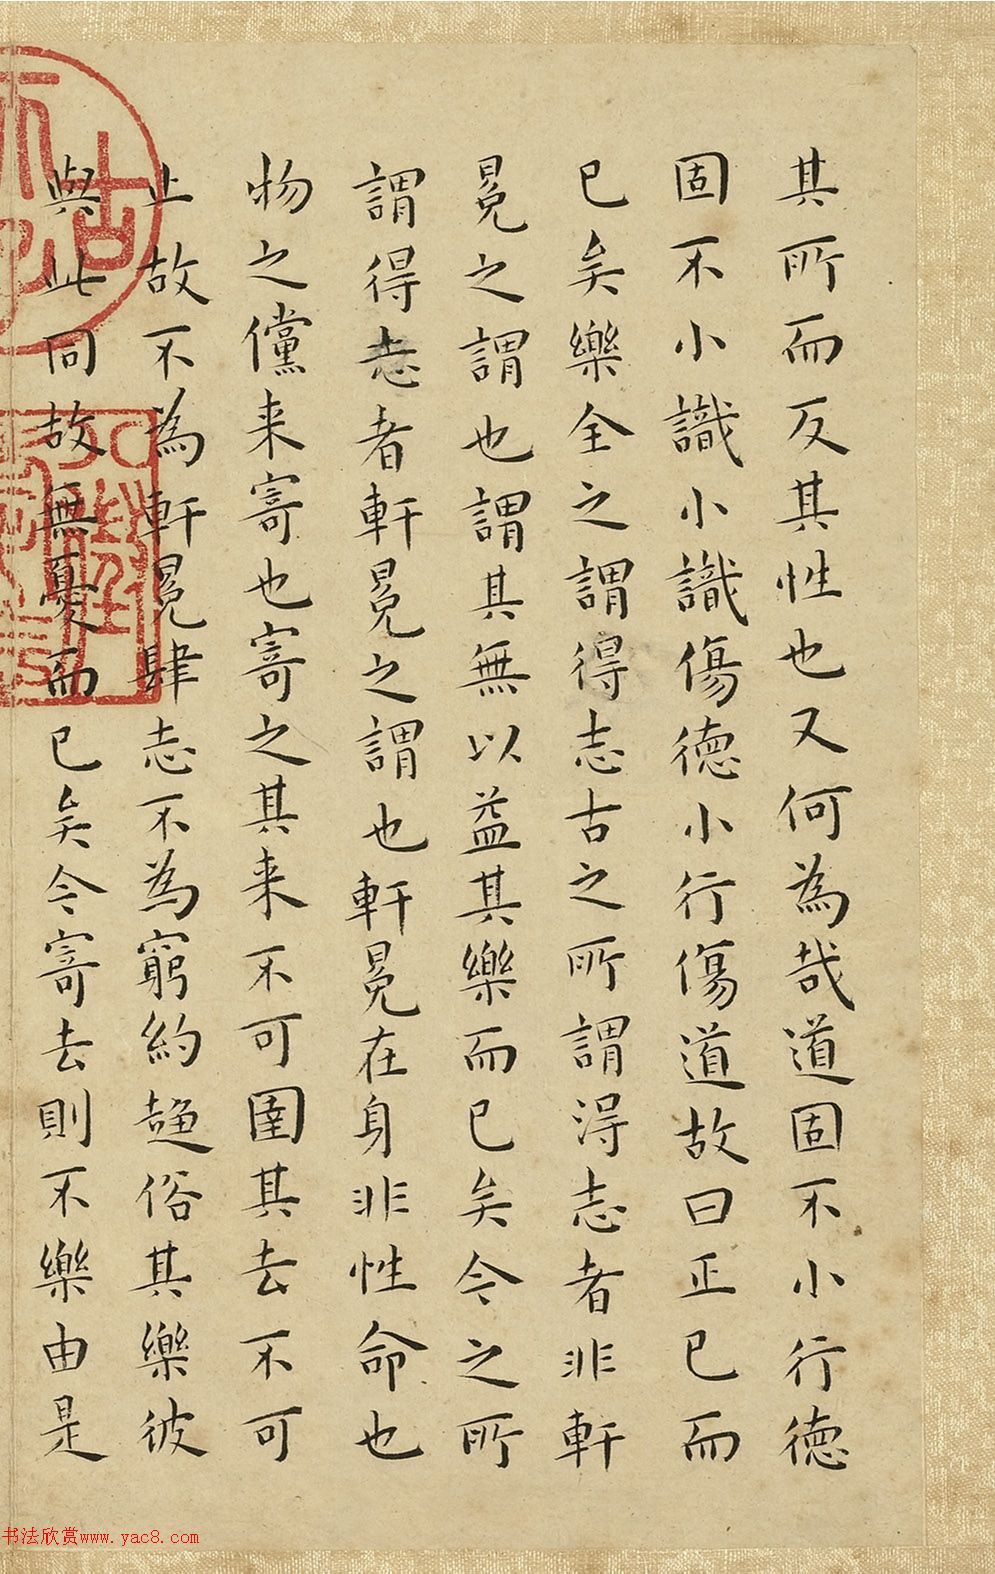 其所而反其性也又何為哉道固不小行德
固不小識小識傷德小行傷道故曰正已而
已矣樂全之謂得志古之所謂淂志者非軒
冕之謂也謂其無以益其樂而已矣今之所
謂得志者軒冕之謂也軒冕在身非性命也
物之儻来寄也寄之其来不可圉其去不可
止故不為軒冕肆志不為窮約趨俗其樂彼
與此同故無憂而已矣今寄去則不樂由是
书法欣赏www.yac8.com